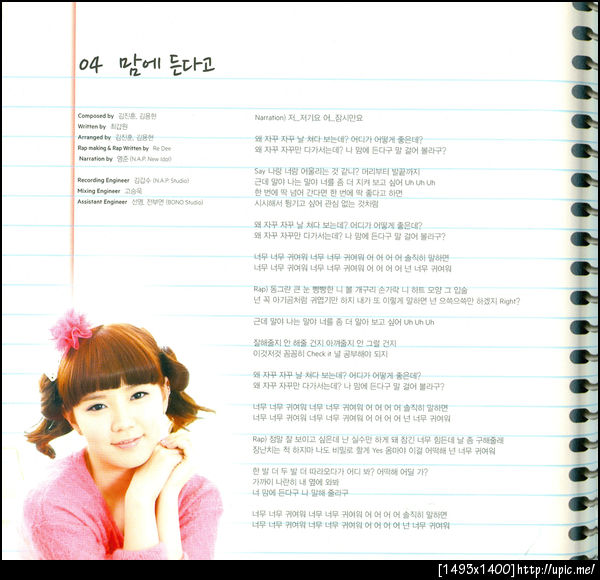 04 맘에 든다고
Composed by 김진훈, 김용현
Written by 최갑원
Arranged by 김진훈, 김용현
Rap making & Rap Written by Re Dee
Narration by 명준 (N.A.P. New Idol)
Recording Engineer 김갑수 (N.A.P Studio)
Mixing Engineer 고승욱
Assistant Engineer 선영, 전부연 (BONO Studio)
Narration) 저_저기요 어_잠시만요
왜 자꾸 자꾸 날 쳐다 보는데? 어디가 어떻게 좋은데?
왜 자꾸 자꾸만 다가서는데? 나 맘에 든다구 말 걸어 볼라구?
Say 나랑 너랑 어울리는 것 같니? 머리부터 발끝까지
근데 말야 나는 말야 너를 좀 더 지켜 보고 싶어 Uh Uh Uh
한 번에 딱 넘어 간다면 한 번에 딱 좋다고 하면
시시해서 튕기고 싶어 관심 없는 것처럼
왜 자꾸 자꾸 날 쳐다 보는데? 어디가 어떻게 좋은데?
왜 자꾸 자꾸만 다가서는데? 나 맘에 든다구 말 걸어 볼라구?
너무 너무 귀여워 너무 너무 귀여워 어 어 어 어 솔직히 말하면
너무 너무 귀여워 너무 너무 귀여워 어 어 어 어 넌 너무 귀여워
Rap) 동그란 큰 눈 빵빵한 니 볼 개구리 손가락 니 하트 모양 그 입술
넌 꼭 아기곰처럼 귀엽기만 하지 내가 또 이렇게 말하면 넌 으쓱으쓱만 하겠지 Right?
근데 말야 나는 말야 너를 좀 더 알아 보고 싶어 Uh Uh Uh
잘해줄지 안 해줄 건지 아껴줄지 안 그럴 건지
이것저것 꼼꼼히 Check it 널 공부해야 되지
왜 자꾸 자꾸 날 쳐다 보는데? 어디가 어떻게 좋은데?
왜 자꾸 자꾸만 다가서는데? 나 맘에 든다구 말 걸어 볼라구?
너무 너무 귀여워 너무 너무 귀여워 어 어 어 어 솔직히 말하면
너무 너무 귀여워 너무 너무 귀여워 어 어 어 어 넌 너무 귀여워
Rap) 정말 잘 보이고 싶은데 난 실수만 하게 돼 잠긴 너무 힘든데 날 좀 구해줄래
장난치는 척 하지마 나도 비밀로 할게 Yes 옴마야 이걸 어떡해 넌 너무 귀여워
한 발 더 두 발 더 따라오다가 어디 봐? 어딱해 어딜 가?
가까이 나란히 내 옆에 와봐
너 맘에 든다구 나 말해 줄라구
너무 너무 귀여워 너무 너무 귀여워 어 어 어 어 솔직히 말하면
너무 너무 귀여워 너무 너무 귀여워 어 어 어 어 넌 너무 귀여워
[1493x1400]http://upic.me/